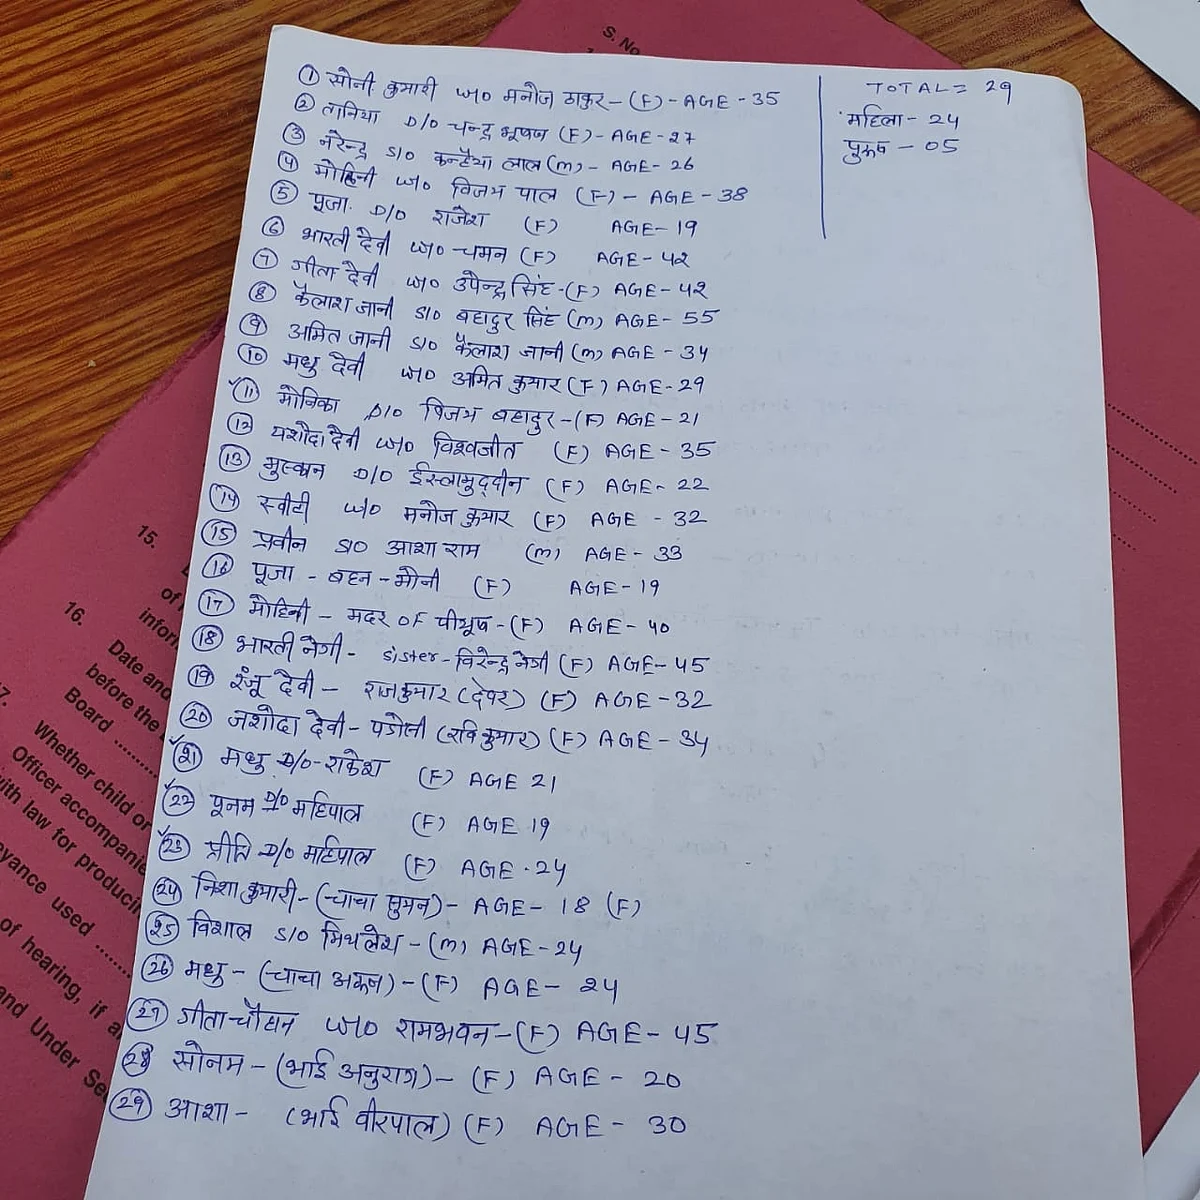 ① सोनी कुमारी W/O मनोज ठाकुर - (F) - AGE - 35
② तानिया D/O चन्द्र भूषण (F) - AGE - 27
③ नरेन्द्र S/O कन्हैया लाल (M) - AGE - 26
④ मोहिनी W/O विजय पाल (F) - AGE - 38
⑤ पूजा. D/O राजेश (F) AGE - 19
⑥ भारती देवी W/O चमन (F) AGE - 42
⑦ गीता देवी W/O उपेन्द्र सिंह - (F) AGE - 42
⑧ कैलाश जानी S/O बहादुर सिंह (M) AGE - 55
⑨ अमित जानी S/O कैलाश जानी (M) AGE - 34
⑩ मधु देवी W/O अमित कुमार (F) AGE - 29
⑪ मोनिका D/O विजय बहादुर - (F) AGE - 21
⑫ यशोदा देवी W/O विश्वजीत (F) AGE - 35
⑬ मुस्कान D/O ईस्लामुद्दीन (F) AGE - 22
⑭ स्वीटी W/O मनोज कुमार (F) AGE - 32
⑮ प्रवीन S/O आशा राम (M) AGE - 33
⑯ पूजा - बहन - मोनी (F) AGE - 19
⑰ मोहिनी - मदर OF पीयूष - (F) AGE - 40
⑱ भारती नेगी - Sister - विरेन्द्र नेगी (F) AGE - 45
⑲ रंजू देवी - राजकुमार (देवर) (F) AGE - 32
⑳ जशोदा देवी - पडोसी (रवि कुमार) (F) AGE - 34
㉑ मधु D/O - राकेश (F) AGE 21
㉒ पूनम D/O महिपाल (F) AGE 19
㉓ प्रीति D/O महिपाल (F) AGE - 24
㉔ निशा कुमारी - (चाचा सुमन) - AGE - 18 (F)
㉕ विशाल S/O मिथलेश - (M) AGE - 24
㉖ मधु - (चाचा अरूण) - (F) AGE - 24
㉗ गीता चौहान W/O रामभवन - (F) AGE - 45
㉘ सोनम - (भाई अनुराग) - (F) AGE - 20
㉙ आशा - (भाई वीरपाल) (F) AGE - 30
TOTAL = 29
महिला - 24
पुरूष - 05
S. No
15.
of
inform
16. Date and
before the
Board
Whether child or
Officer accompanie
with law for producin
eyance used
of hearing, if a
and Under Se